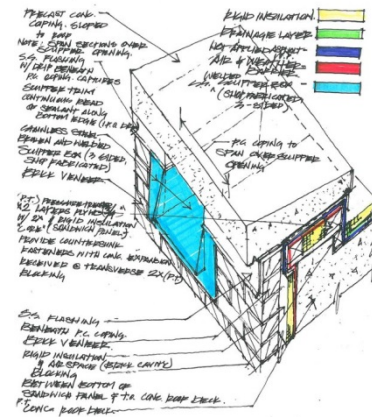 PRECAST CONC.
COPING. SLOPED
TO ROOF
NOTE: SPAN SECTIONS OVER
SCUPPER OPENING.
S.S. FLASHING
W/ DRIP BENEATH
P.C. COPING CAPTURES
SCUPPER TRIM
CONTINUOUS BEAD
OF SEALANT ALONG
BOTTOM EDGE
STAINLESS STEEL
BROKEN AND WELDED
SCUPPER BOX (3 SIDED,
SHOP FABRICATED)
BRICK VENEER
(P.T.) PRESSURE TREATED
X2 LAYERS PLYWOOD
W/ 2" RIGID INSULATION
"CORE" (SANDWICH PANEL)
PROVIDE COUNTERSUNK
FASTENERS WITH CONC. EXPANSION
RECEIVED @ TRANSVERSE 2X(P.T.)
BLOCKING
S.S. FLASHING
BENEATH P.C. COPING.
BRICK VENEER
RIGID INSULATION
& AIRSPACE (BRICK CAVITY)
BLOCKING
BETWEEN BOTTOM OF
SANDWICH PANEL & T.O. CONC. ROOF DECK.
P.T.
CONC. ROOF DECK
RIGID INSULATION
DRAINAGE LAYER
HOT APPLIED
AIR & WEATHER
BARRIER
WELDED
SCUPPER BOX
(SHOP FABRICATED
3-SIDED)
P.C. COPING TO
SPAN OVER SCUPPER
OPENING